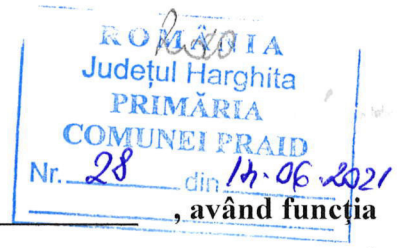 ROMÂNIA
Județul Harghita
PRIMĂRIA
COMUNEI PRAID
Nr. 28 din 14.06.2021
, având funcția